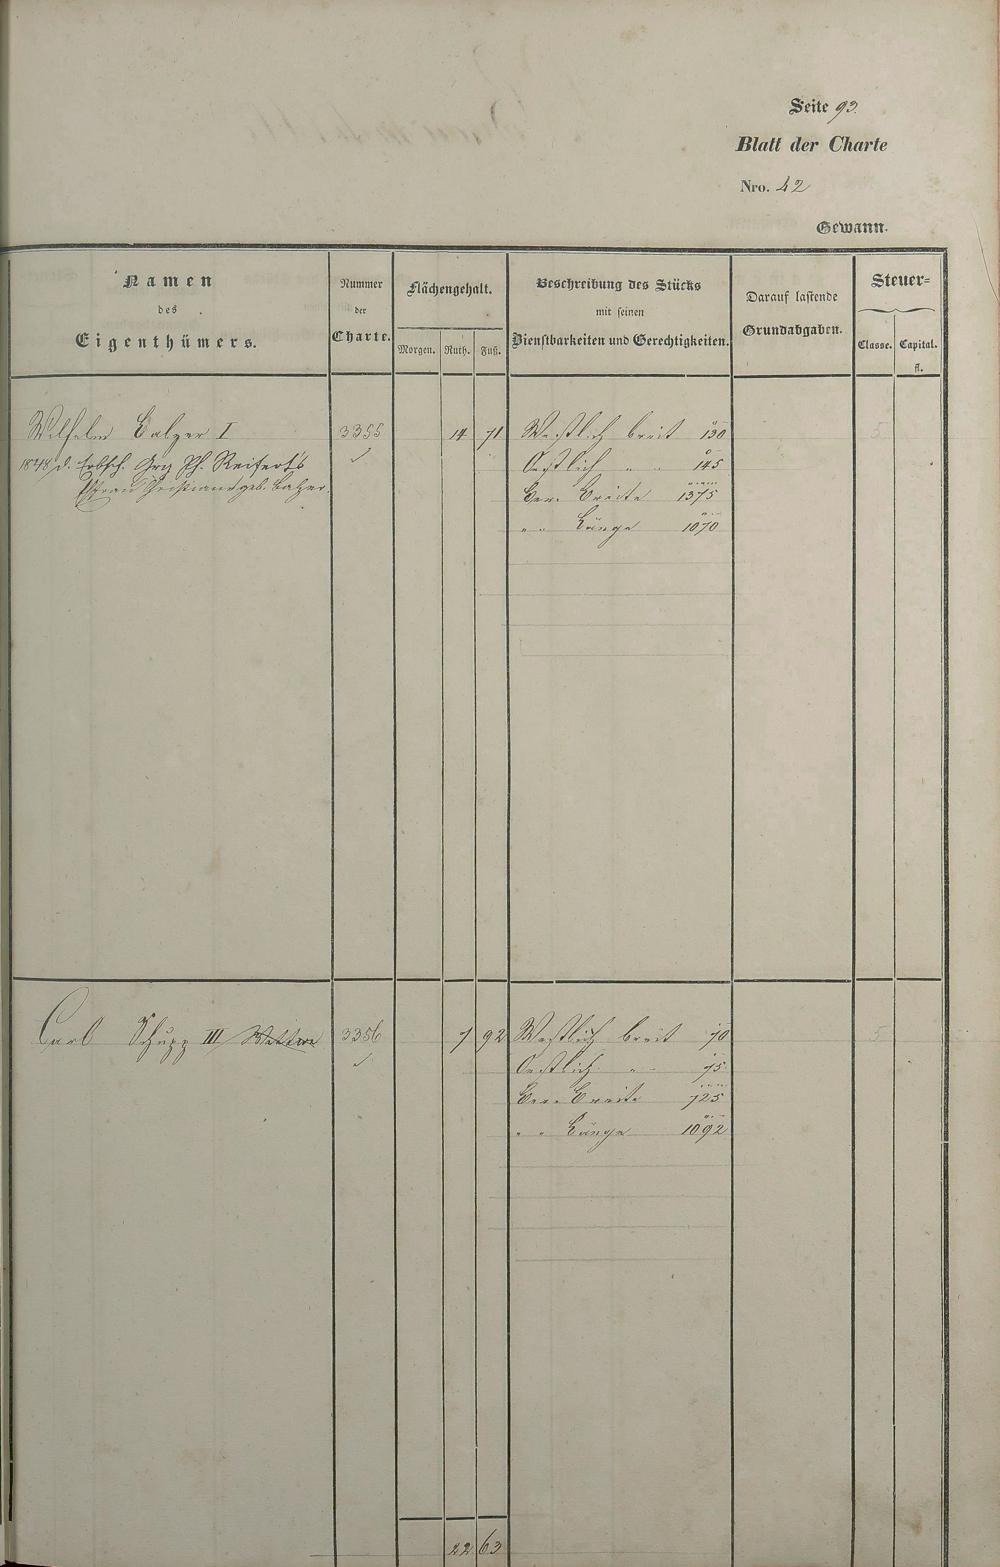 Seite 93.
Blatt der Charte
Nro. 42
Gewann.
Namen des Eigenthümers.
Nummer der Charte.
Flächengehalt.
Morgen. Ruth. Fuß.
Beschreibung des Stücks mit seinen Dienstbarkeiten und Gerechtigkeiten.
Darauf lastende Grundabgaben.
Steuer=
Classe. Capital. fl.
Wilhelm Balzer I 3355 14 71 Westlich breit 130 5
1848 d. Erbsch. Grg Ph. Reifert's Oestlich " " 145
Ehfrau Christiane geb. Balzer. Ber. Breite 1375
" " Länge 1070
Carl Schupp III Wittwe 3356 7 92 Westlich breit 70 5
Oestlich " " 75
Ber. Breite 725
" " Länge 1092
22 63